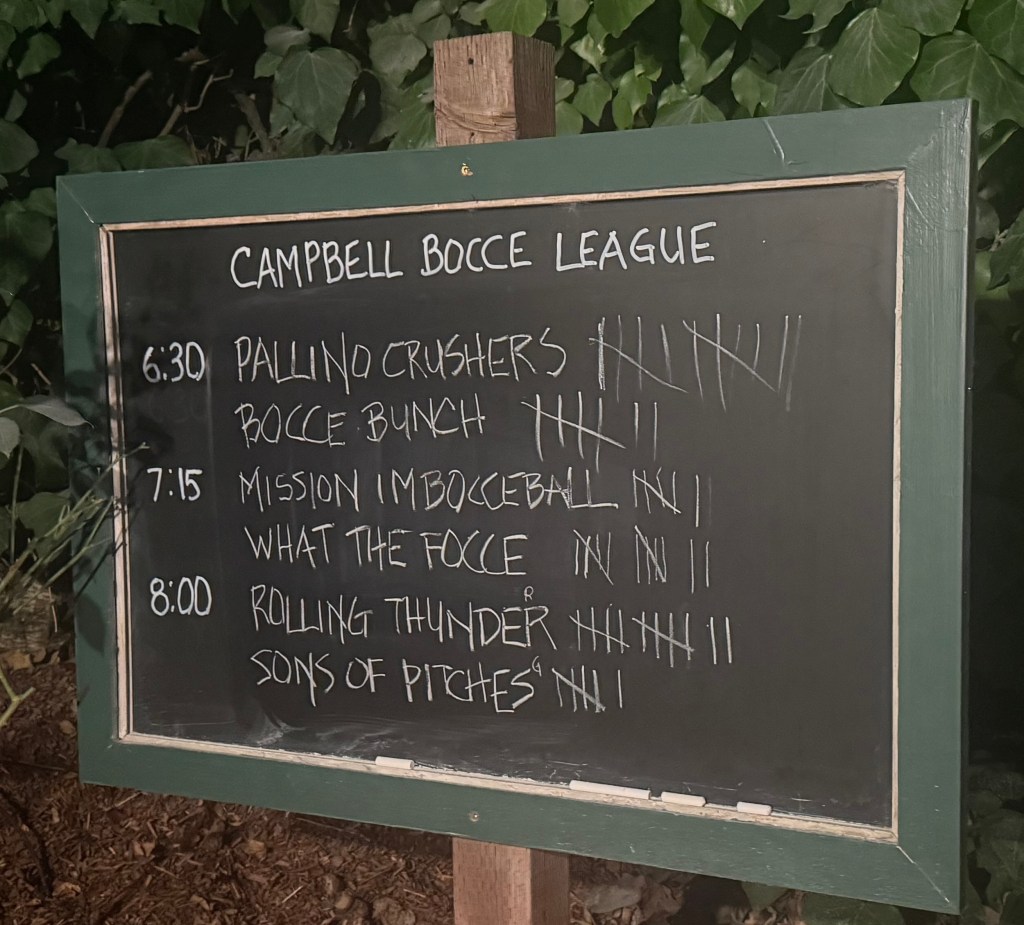 CAMPBELL BOCCE LEAGUE
6:30 PALLINO CRUSHERS
BOCCE BUNCH
7:15 MISSION IMBOCCEBALL
WHAT THE FOCCE
8:00 ROLLING THUNDER R
SONS OF PITCHES G